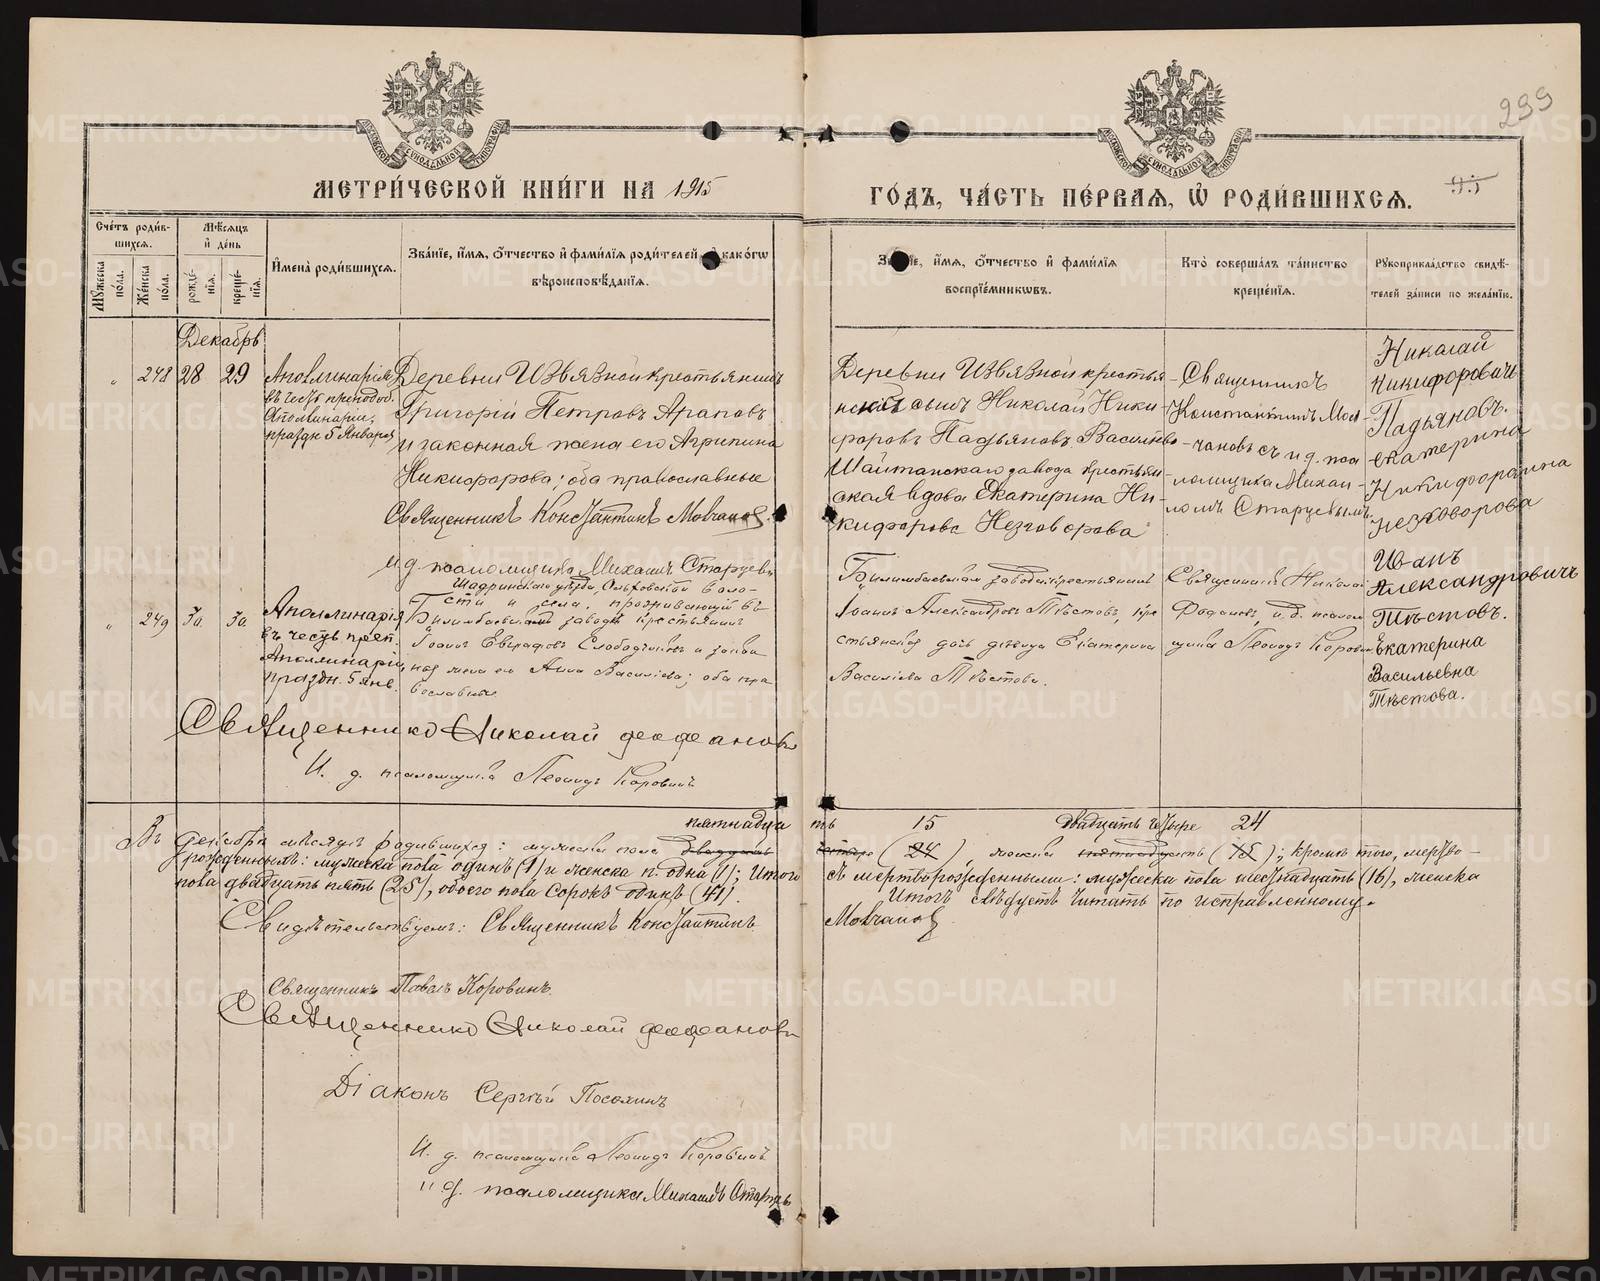 299
МЕТРИ́ЧЕСКОЙ КНИ́ГИ НА 1915
ГО́ДЪ, ЧА́СТЬ ПЕ́РВАЯ, Ѡ РОДИ́ВШИХСЯ.
95
Сче́тъ роди́в-
шихся.
Мꙋ́жеска по́ла.
Же́нска по́ла.
Мѣ́сѧцъ
и҆ де́нь
рожде́-
нїѧ.
креще́-
нїѧ.
И҆мена̀ роди́вшихсѧ.
Зва́нїе, и҆́мѧ, о҆́тчество и҆ фами́лїѧ роди́телей, и҆ како́гѡ
вѣроисповѣ́данїѧ.
Зва́нїе, и҆́мѧ, о҆́тчество и҆ фами́лїѧ
воспрїе́мникѡвъ.
Кто̀ соверша́лъ та́инство
креще́нїѧ.
Рꙋкоприкла́дство свидѣ́-
телей за́писи по жела́нїю.
Декабрь
" 248 28 29
Аполлинарія
въ честь преподоб.
Аполлинаріи,
праздн 5 Января
Деревни Извязной крестьянинъ
Григорій Петровъ Араповъ
и законная жена его Агрипина
Никифорова; оба православные
Священникъ Константинъ Молчановъ
и.д. псаломщика Михаилъ Старцевъ
Деревни Извязной крестья-
нскій сынъ Николай Ники
форовъ Падьяновъ. Васильево
Шайтанскаго завода крестьян
ская вдова Екатерина Ни-
кифорова Незговорова
Священникъ
Константинъ Мол
чановъ съ и.д. пса
ломщика Михаи-
ломъ Старцевымъ.
Николай
Никифоровичъ
Падьяновъ.
Екатерина
Никифоровна
Незговорова
" 249 30 30
Аполлинарія
въ честь преп.
Аполлинаріи,
праздн. 5 янв.
Шадринскаго уѣзда, Ольховской воло-
сти и села, проживающій въ
Билимбаевскомъ заводѣ крестьянинъ
Іоаннъ Евграфовъ Слободчиковъ и закон
ная жена его Анна Васильева; оба пра
вославные
Священникъ Николай Феофановъ
И. д. псаломщика Леонидъ Коровинъ
Билимбаевскаго завода крестьянинъ
Іоаннъ Александровъ Тѣстовъ, кре
стьянская дочь дѣвица Екатерина
Васильева Тѣстова.
Священникъ Николай
Феофановъ, и.д. псалом
щика Леонидъ Коровинъ
Иванъ
Александровичъ
Тѣстовъ.
Екатерина
Васильевна
Тѣстова.
пятнадцать 15 двадцать четыре 24
Въ декабрѣ мѣсяцѣ родившихся: мужеска пола двадцать четыре (24), женска пятнадцать (15); кромѣ того, мертво-
рожденныхъ: мужеска пола одинъ (1) и женска п. одна (1); Итого съ мертворожденными: мужеска пола шестнадцать (16), женска
пола двадцать пять (25), обоего пола сорокъ одинъ (41). Итогъ слѣдуетъ читать по исправленному.
Свидѣтельствуемъ: Священникъ Константинъ Молчановъ
Священникъ Павелъ Коровинъ.
Священникъ Николай Феофановъ
Діаконъ Сергѣй
И. д. псаломщика Леонидъ Коровинъ
и.д. псаломщика Михаилъ Старцевъ